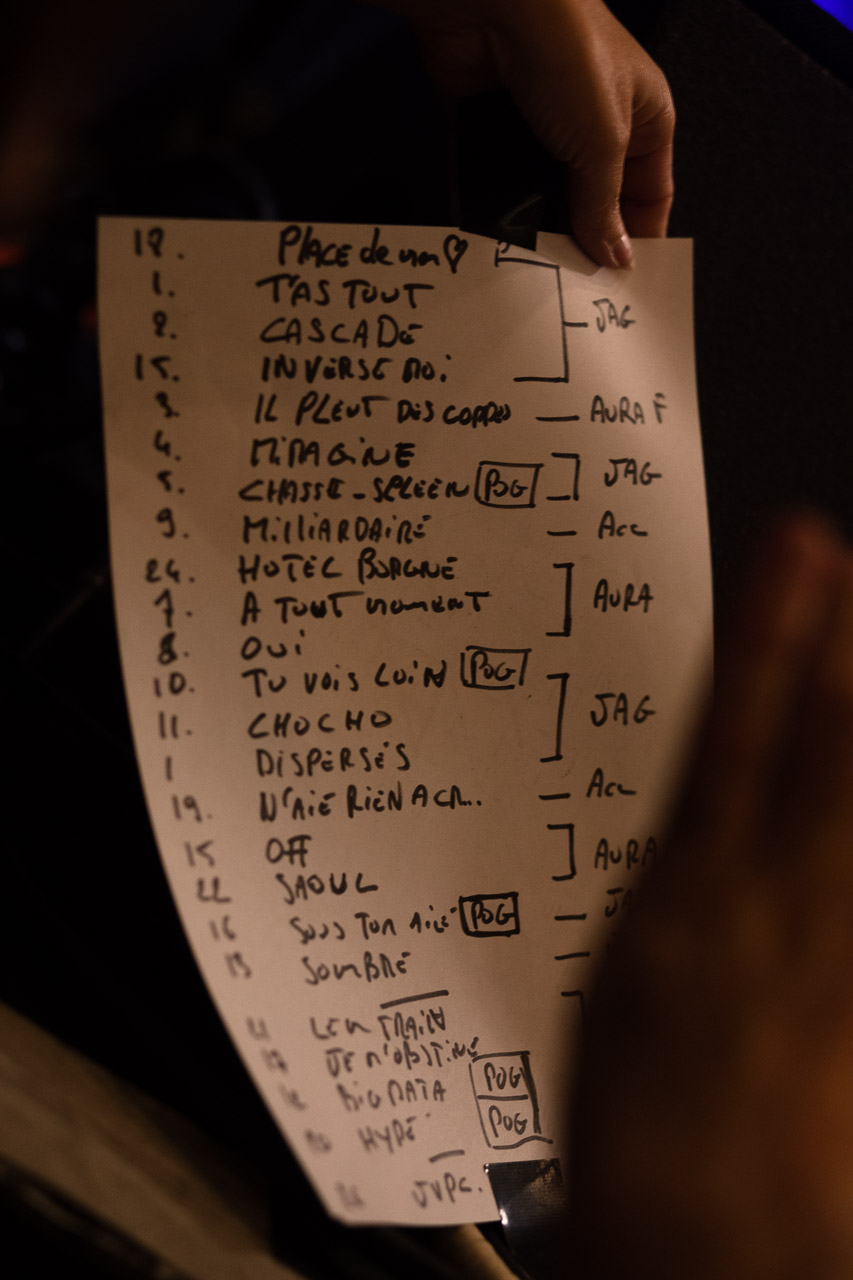 18. PLACE de mon ♡
1. T'AS TOUT
2. CASCADE JAG
15. INVERSE MOI
3. IL PLEUT DES CORDES — AURA F
4. M'IMAGINE
5. CHASSE-SPLEEN POG JAG
9. MILLIARDAIRE — Acc
24. HOTEL BORGNE
7. A TOUT MOMENT AURA
8. OUI
10. TU VOIS LOIN POG
11. CHOCHO JAG
DISPERSÉS
19. N'AIE RIEN A CR.. — Acc
15 OFF AURA
22 SAOUL
16 SOUS TON AILE POG —
13 SOMBRE —
LEN TRAIN
JE M'OBSTINE
BIG DATA POG
HYPE POG
JVPC.